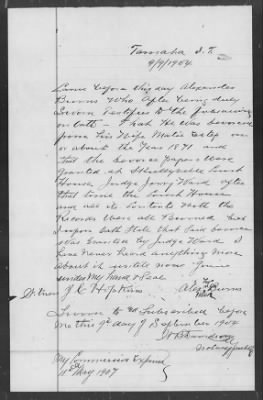 Tamaha I.T.
9/9/1904
Came before this day Alexander
Burns Who after being duly
Sworn Testified to the following
on oath - That He was Divorced
from his Wife Matie on
or about the Year 1871 and
that the Divorce Papers Were
granted at Skullyville Court
House, Judge Ward after
that time the Court House
and all its Contents with the
Records Were all Burned
upon oath State that Said Divorce
was Granted by Judge Ward I
have never heard anything more
about it untill now Given
under My Hand & Seal
Witness J. C. Hipkins Alex Burns
his
mark
Sworn to & Subscribed before
Me this 9th day of September 1904
Notary Public
My Commission Expires
May 1907